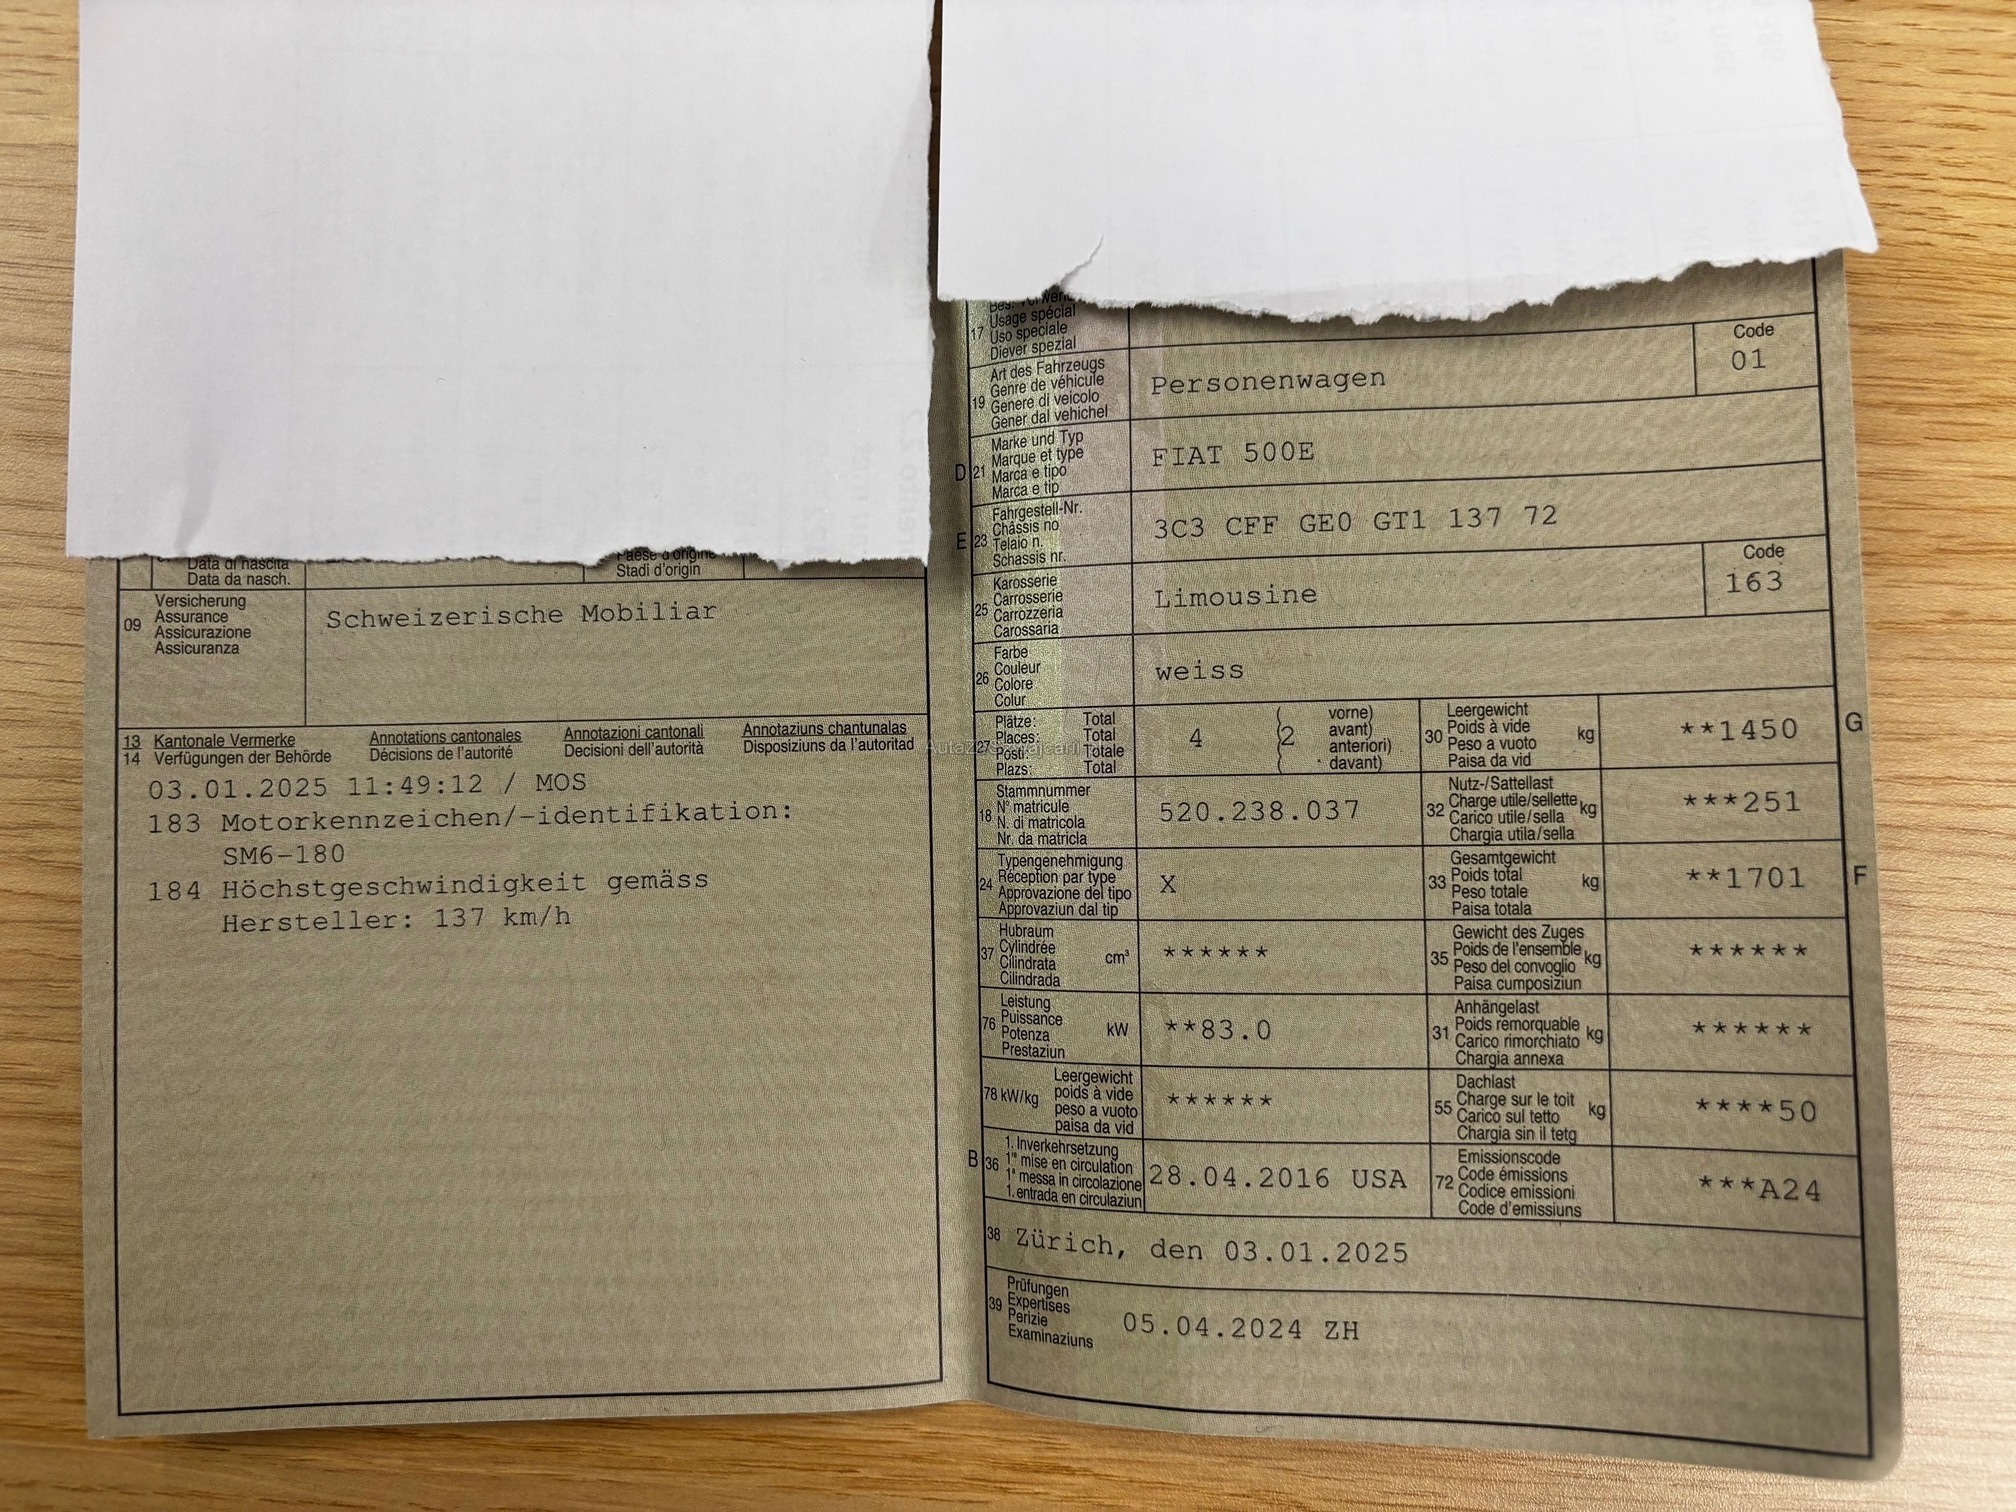 Data di nascita
Data da nasch.
Paese d'origine
Stadi d'origin
09
Versicherung
Assurance
Assicurazione
Assicuranza
Schweizerische Mobiliar
13
14
Kantonale Vermerke
Verfügungen der Behörde
Annotations cantonales
Décisions de l'autorité
Annotazioni cantonali
Decisioni dell'autorità
Annotaziuns chantunalas
Disposiziuns da l'autoritad
03.01.2025 11:49:12 / MOS
183 Motorkennzeichen/-identifikation:
SM6-180
184 Höchstgeschwindigkeit gemäss
Hersteller: 137 km/h
17
Usage spécial
Uso speciale
Diever spezial
19
Art des Fahrzeugs
Genre de véhicule
Genere di veicolo
Gener dal vehichel
Personenwagen
Code
01
D
21
Marke und Typ
Marque et type
Marca e tipo
Marca e tip
FIAT 500E
E
23
Fahrgestell-Nr.
Châssis no
Telaio n.
Schassis nr.
3C3 CFF GE0 GT1 137 72
25
Karosserie
Carrosserie
Carrozzeria
Carossaria
Limousine
Code
163
26
Farbe
Couleur
Colore
Colur
weiss
27
Plätze: Total
Places: Total
Posti: Totale
Plazs: Total
4
(2
vorne)
avant)
anteriori)
davant)
30
Leergewicht
Poids à vide
Peso a vuoto
Paisa da vid
kg
**1450
G
18
Stammnummer
N° matricule
N. di matricola
Nr. da matricla
520.238.037
32
Nutz-/Sattellast
Charge utile/sellette
Carico utile/sella
Chargia utila/sella
kg
***251
24
Typengenehmigung
Réception par type
Approvazione del tipo
Approvaziun dal tip
X
33
Gesamtgewicht
Poids total
Peso totale
Paisa totala
kg
**1701
F
37
Hubraum
Cylindrée
Cilindrata
Cilindrada
cm³
******
35
Gewicht des Zuges
Poids de l'ensemble
Peso del convoglio
Paisa cumposiziun
kg
******
76
Leistung
Puissance
Potenza
Prestaziun
kW
**83.0
31
Anhängelast
Poids remorquable
Carico rimorchiato
Chargia annexa
kg
******
78 kW/kg
Leergewicht
poids à vide
peso a vuoto
paisa da vid
******
55
Dachlast
Charge sur le toit
Carico sul tetto
Chargia sin il tetg
kg
****50
B
36
1. Inverkehrsetzung
1re mise en circulation
1a messa in circolazione
1. entrada en circulaziun
28.04.2016 USA
72
Emissionscode
Code émissions
Codice emissioni
Code d'emissiuns
***A24
38
Zürich, den 03.01.2025
39
Prüfungen
Expertises
Perizie
Examinaziuns
05.04.2024 ZH